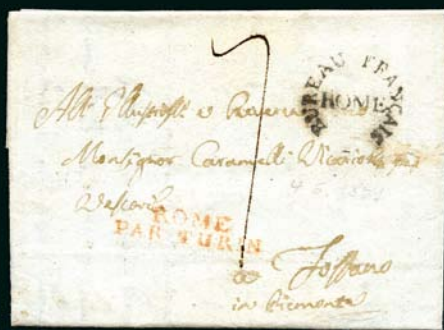 7
BUREAU FRANÇAIS
ROME
All' Illustrissº e
Monsignor Caramelli Vicario
ROME
PAR TURIN
a Fossano
in Piemonte